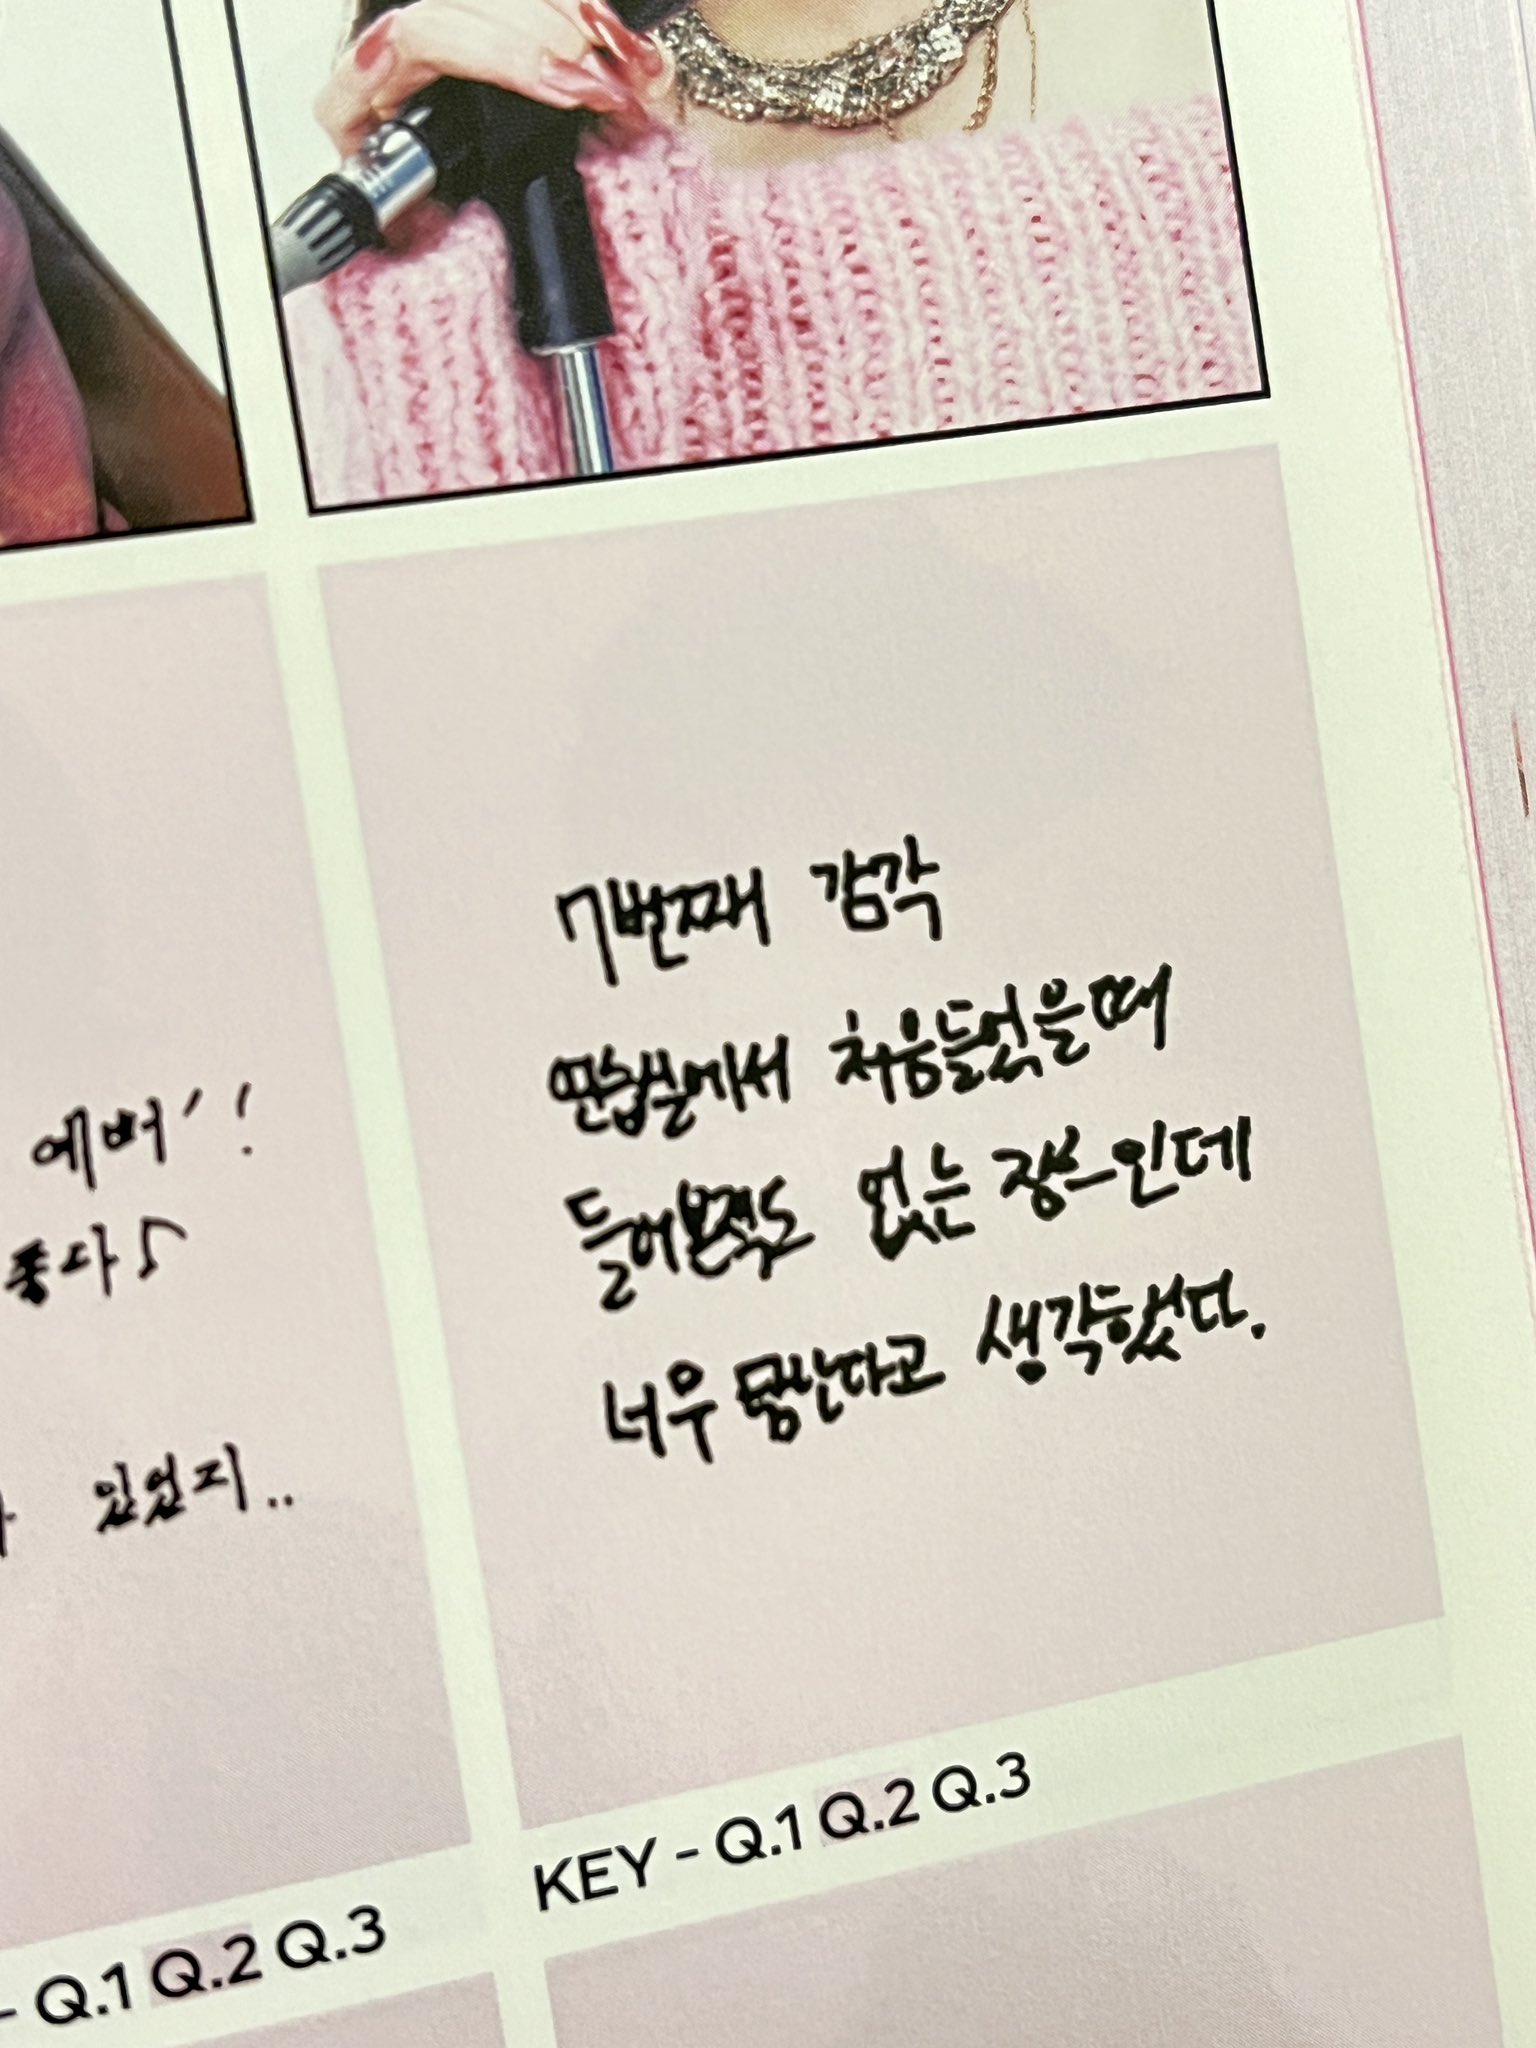 에버''!
좋다♪
있었지..
7번째 감각
연습실에서 처음들었을때
들어본적도 없는 장르인데
너무 몽환다고 생각했다.
KEY - Q.1 Q.2 Q.3
- Q.1 Q.2 Q.3